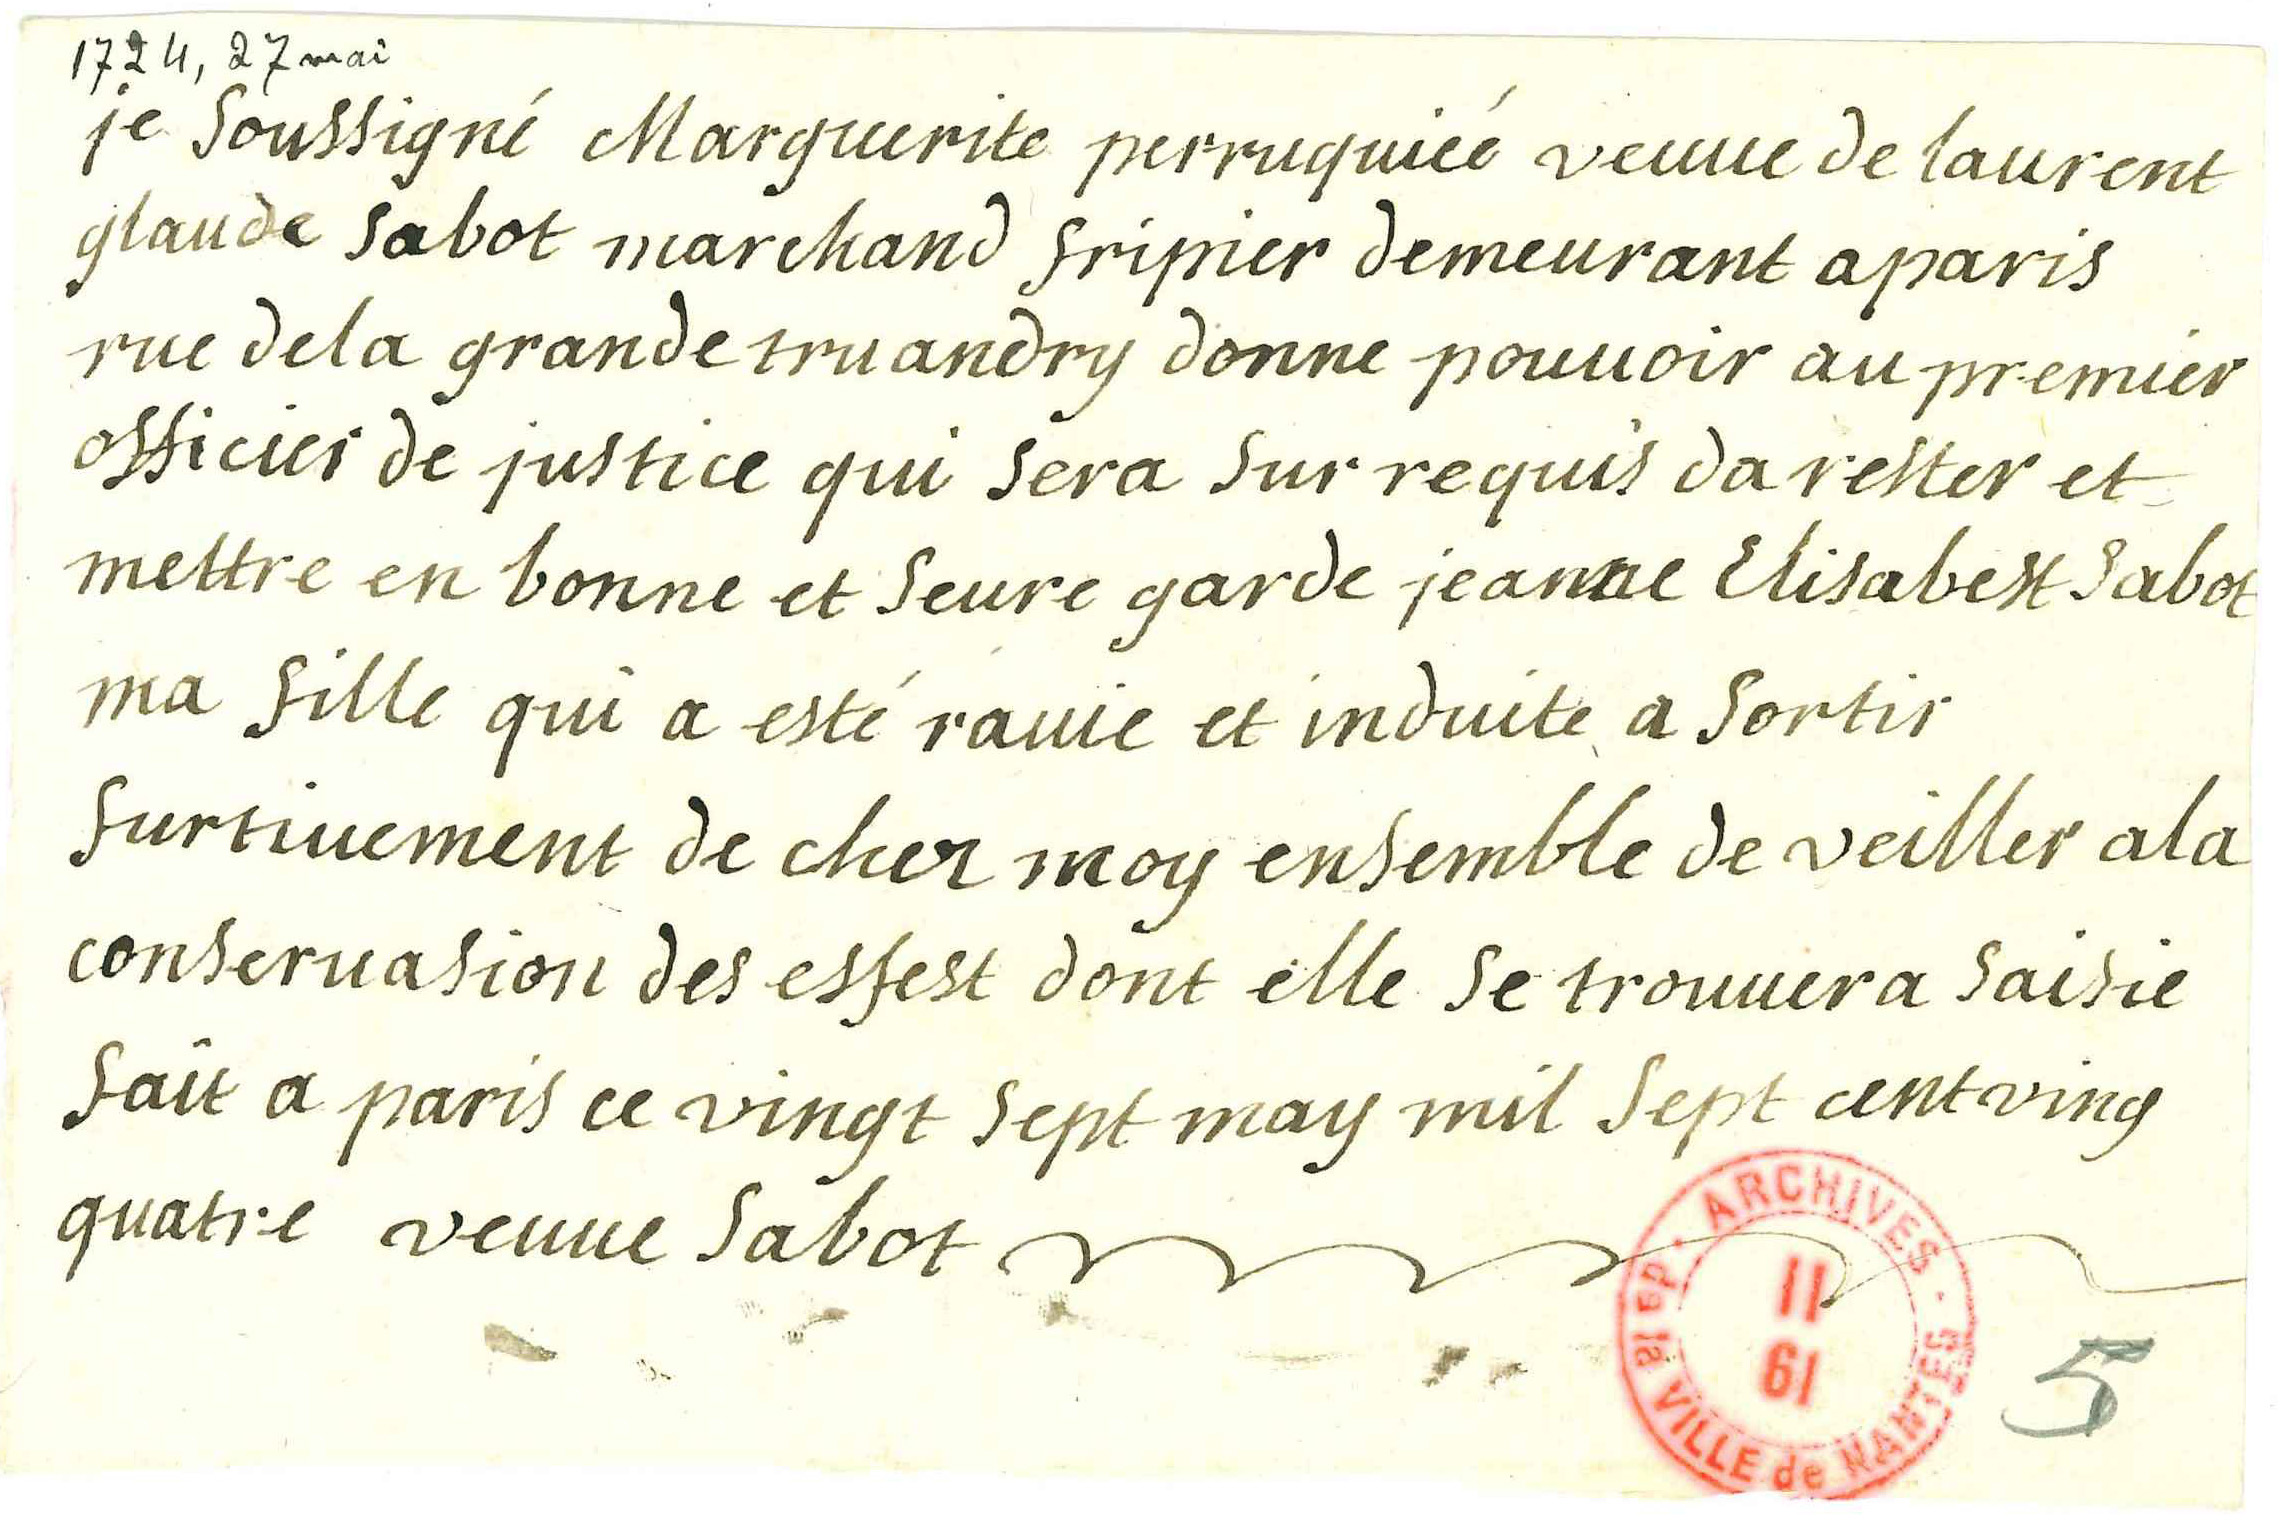 1724, 27 mai
je soussigné Marguerite perruquieé veuue de laurent
glaude sabot marchand fripier demeurant a paris
rue dela grande truandry donne pouuoir au premier
officier de justice qui sera sur requis darester et
mettre en bonne et seure garde jeanne Elisabest sabot
ma fille qui a esté rauie et induite a sortir
furtiuement de chez moy ensemble de veiller ala
conseruasion des esfest dont elle se trouuera saisie
fait a paris ce vingt sept may mil sept cent ving
quatre veuue sabot
ARCHIVES de la VILLE de NANTES
II
19
5